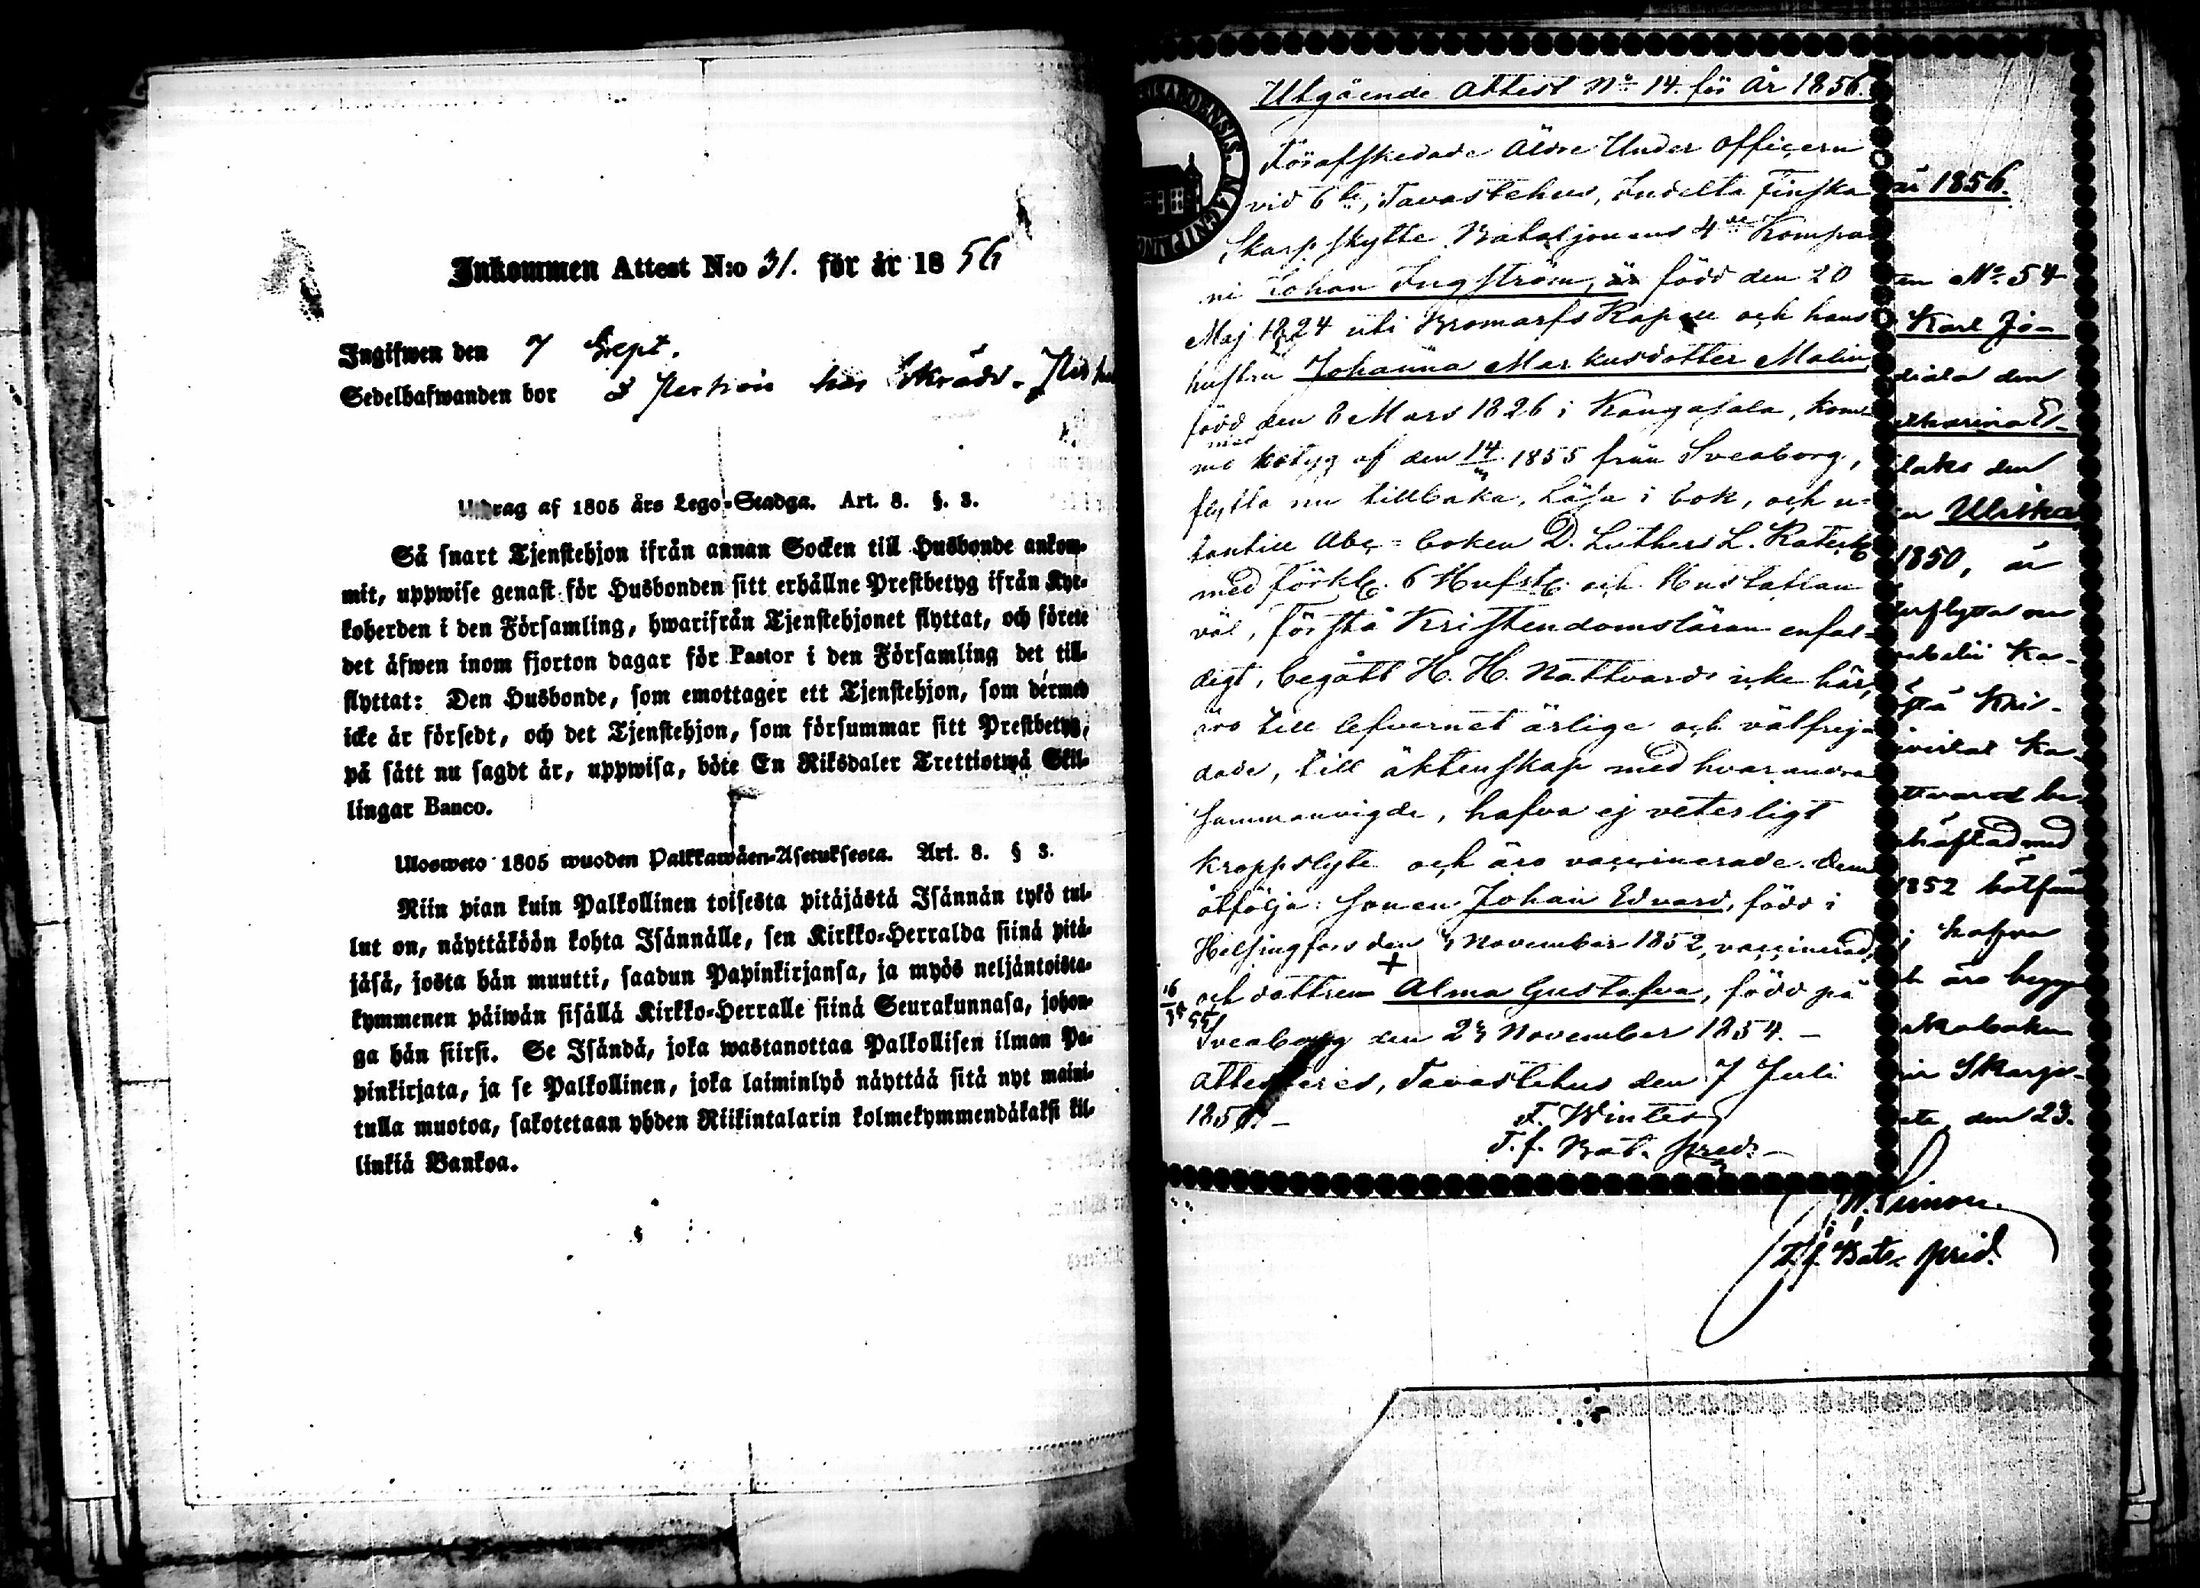 Inkommen Attest N:o 31. för år 1856
Ingifwen den 7 Sept.
Sedelhafwanden bor hos Skrädd.
Utdrag af 1805 års Lego-Stadga. Art. 8. §. 3.
Så snart Tjenstehjon ifrån annan Socken till Husbonde ankom-
mit, uppwise genast för Husbonden sitt erhållne Prestbetyg ifrån Kyr-
koherden i den Församling, hwarifrån Tjenstehjonet flyttat, och förete
det äfwen inom fjorton dagar för Pastor i den Församling det till-
flyttat: Den Husbonde, som emottager ett Tjenstehjon, som dermed
icke är försedt, och det Tjenstehjon, som försummar sitt Prestbetyg,
på sätt nu sagdt är, uppwisa, böte En Riksdaler Trettiotwå Skil-
lingar Banco.
Ulosweto 1805 wuoden Palkkawäen-Asetuksesta. Art. 8. § 3.
Niin pian kuin Palkollinen toisesta pitäjästä Isännän tykö tul-
lut on, näyttäköön kohta Isännälle, sen Kirkko-Herralda siinä pitä-
jäsä, josta hän muutti, saadun Papinkirjansa, ja myös neljäntoista-
kymmenen päiwän sisällä Kirkko-Herralle siinä Seurakunnasa, johon-
ga hän siirsi. Se Isändä, joka wastanottaa Palkollisen ilman Pa-
pinkirjata, ja se Palkollinen, joka laiminlyö näyttää sitä nyt maini-
tulla muotoa, sakotetaan yhden Riikintalarin kolmekymmendäkaksi kil-
linkiä Bankoa.
Utgående Attest No 14. för År 1856.
Förafskedade Äldre Under Officern
vid 6te, Tavastehus, Indelta Finska
Skarpskytte Bataljonens 4de Kompa
ni Johan Engström, är född den 20
Maj 1824 uti Bromarfs Kapell och hans
hustru Johanna Markusdotter Malin,
född den 8 Mars 1826 i Kangasala, kom
med
ne betyg af den 14 1855 från Sveaborg,
flytta nu tillbaka, Läsa i bok, och u-
tantill Abc-boken D. Luthers L. Katech
med Förkl. 6 Hufst. och Hustaflan
väl, förstå Kristendomsläran enfal-
digt, begått H. H. Nattvard icke här,
äro till lefvernet ärlige och välfrej-
dade, till äktenskap med hvarandra
sammanvigde, hafva ej veterligt
kroppslyte och äro vaccinerade. Dem
åtfölja: Sonen Johan Edvard, född i
Helsingfors den November 1852, vaccinerad,
och dottren Alma Gustafva, född på
Sveaborg den 23 November 1854. –
Attesteres, Tavastehus den 7 Juli
1856. –
F. Winter
T. f. Bat. pred. –
år 1856.
en No 54
Karl Jo-
den
den
Ulrika
1850, är
1852
hafva
äro
Skarps-
den 23.
T. f. Bats. pred.